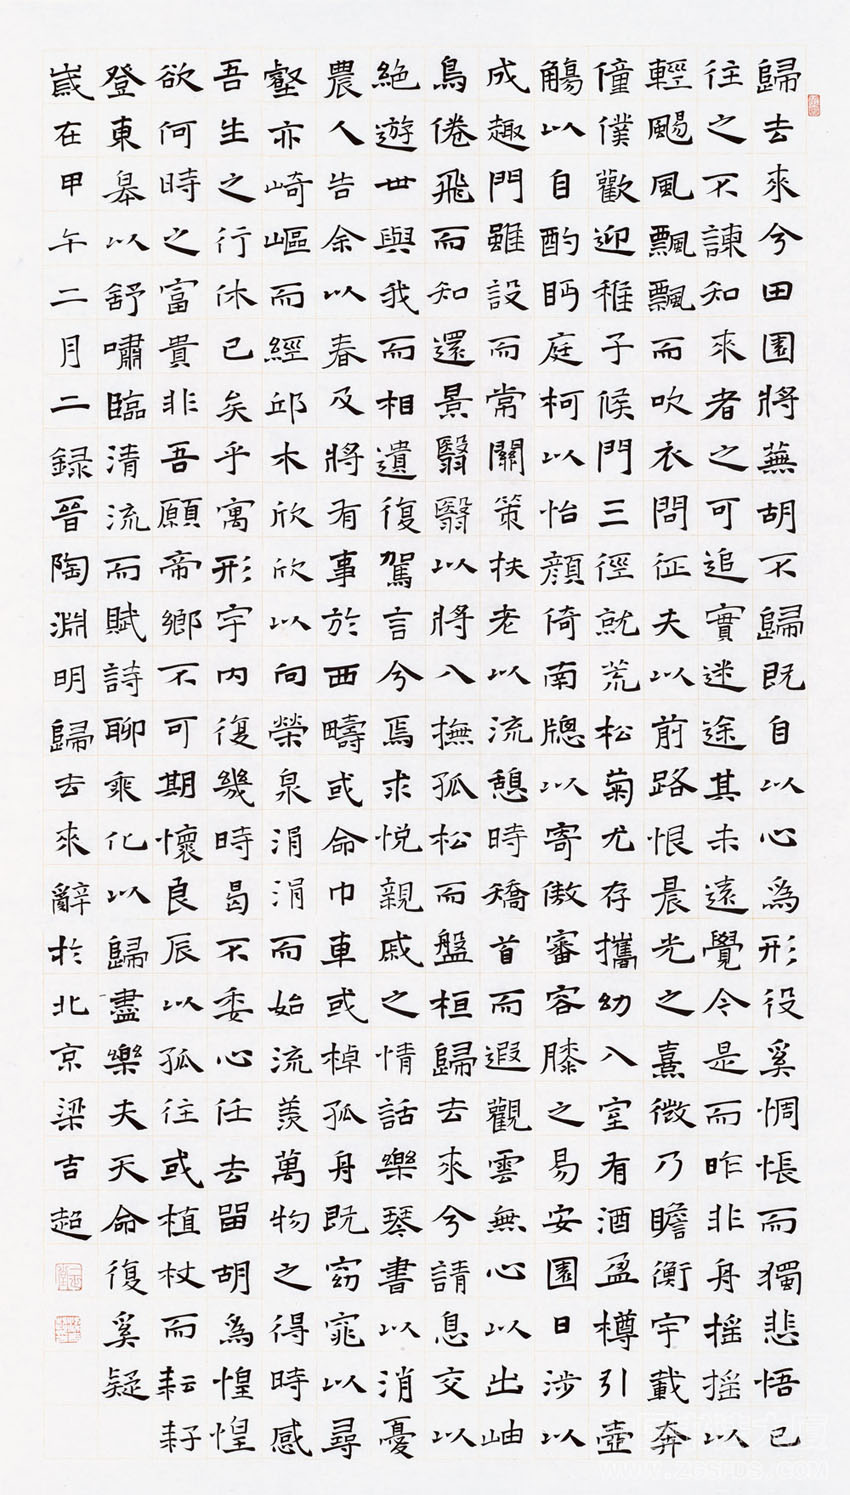 歸去來兮田園將蕪胡不歸既自以心為形役奚惆悵而獨悲悟已
往之不諫知來者之可追實迷途其未遠覺今是而昨非舟搖搖以
輕颺風飄飄而吹衣問征夫以前路恨晨光之熹微乃瞻衡宇載奔
僮僕歡迎稚子候門三徑就荒松菊尤存攜幼入室有酒盈樽引壺
觴以自酌眄庭柯以怡顏倚南牕以寄傲審容膝之易安園日涉以
成趣門雖設而常關策扶老以流憩時矯首而遐觀雲無心以出岫
鳥倦飛而知還景翳翳以將入撫孤松而盤桓歸去來兮請息交以
絕遊世與我而相遺復駕言兮焉求悅親戚之情話樂琴書以消憂
農人告余以春及將有事於西疇或命巾車或棹孤舟既窈窕以尋
壑亦崎嶇而經邱木欣欣以向榮泉涓涓而始流羨萬物之得時感
吾生之行休已矣乎寓形宇內復幾時曷不委心任去留胡為惶惶
欲何時之富貴非吾願帝鄉不可期懷良辰以孤往或植杖而耘耔
登東皋以舒嘯臨清流而賦詩聊乘化以歸盡樂夫天命復奚疑
歲在甲午二月二錄晉陶淵明歸去來辭於北京梁吉超
WWW.ZGSFDS.COM